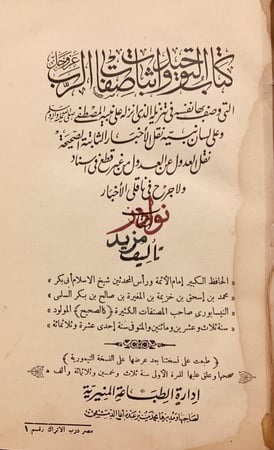 كتاب التوحيد وإثبات صفات الرب عز وجل
التى وصف بها نفسه فى تنزيله الذى أنزله على نبيه المصطفى صلى الله عليه وسلم
وعلى لسان نبيه نقل الأخبار الثابتة الصحيحة
نقل العدول عن العدول من غير قطع فى إسناد
ولا جرح فى ناقلى الأخبار
نوادر
مزيد
تأليف
الحافظ الكبير إمام الأئمة ورأس المحدثين شيخ الاسلام أبى بكر
محمد بن إسحق بن خزيمة بن المغيرة بن صالح بن بكر السلمى
النيسابورى صاحب المصنفات الكثيرة (كالصحيح) المولود
سنة ثلاث وعشرين ومائتين والمتوفى سنة إحدى عشرة وثلاثمائة
طبعت على نسختنا بعد عرضها على النسخة التيمورية
صححها وعلق عليها للمرة الأولى سنة ثلاث وخمسين وثلاثمائة وألف
إدارة الطباعة المنيرية
لصاحبها ومديرها محمد منير عبده أغا الدمشقى
مصر درب الأتراك رقم ١